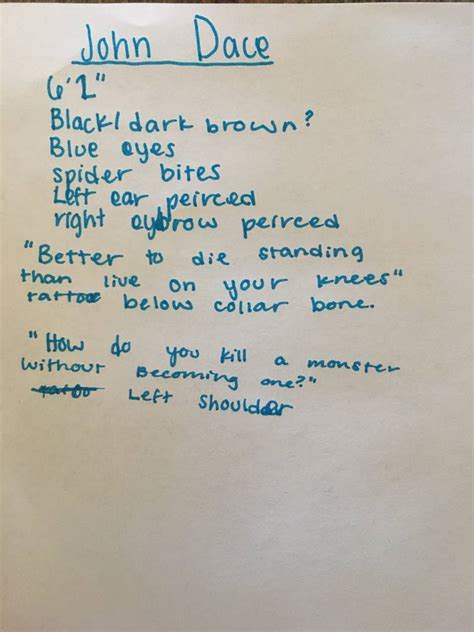 John Dace
6'2"
Black/dark brown?
Blue eyes
spider bites
Left ear peirced
right eybrow peirced
"Better to die standing
than live on your knees"
tattoo below collar bone.
"How do you kill a monster
without Becoming one?"
tattoo Left shoulder